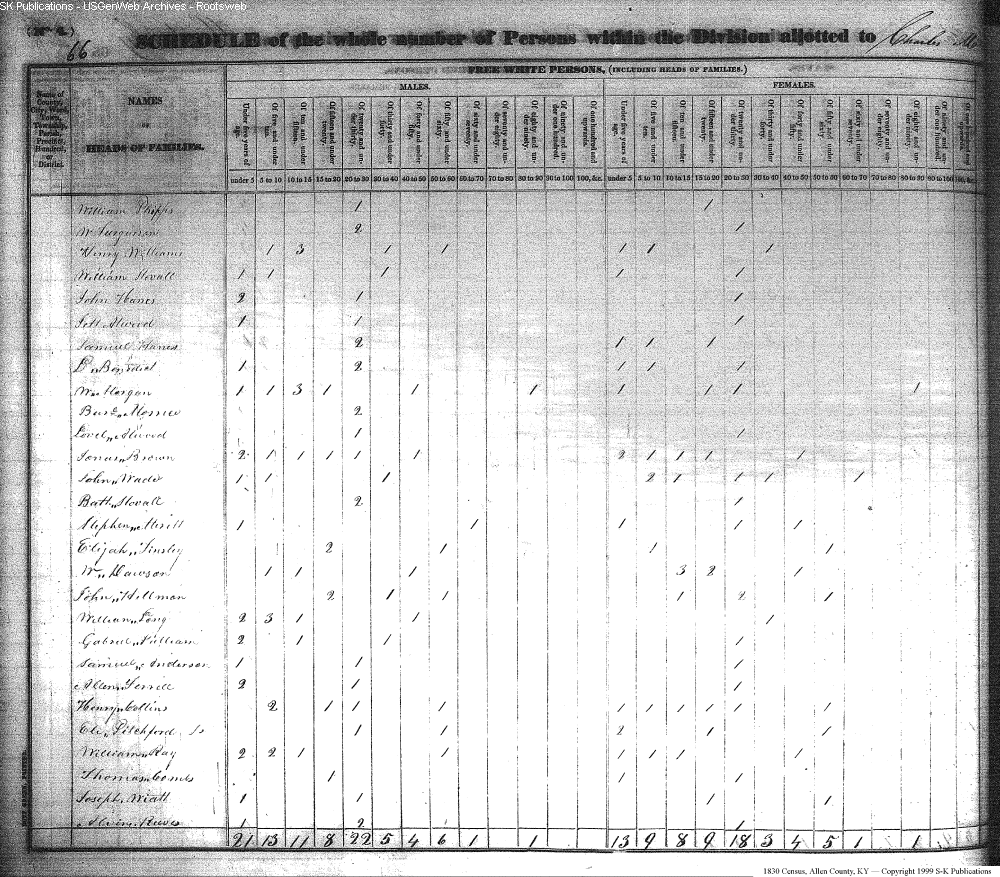 SK Publications - USGenWeb Archives - Rootsweb
(No. 4.)
66
SCHEDULE of the whole number of Persons within the Division allotted to Charles
FREE WHITE PERSONS, (INCLUDING HEADS OF FAMILIES.)
Name of County, City, Ward, Town, Township, Parish, Precinct, Hundred, or District.
NAMES
OF
HEADS OF FAMILIES.
MALES.
FEMALES.
Under five years of age. Of five and under ten. Of ten and under fifteen. Of fifteen and under twenty. Of twenty and under thirty. Of thirty and under forty. Of forty and under fifty. Of fifty and under sixty. Of sixty and under seventy. Of seventy and under eighty. Of eighty and under ninety. Of ninety and under one hundred. Of one hundred and upwards.
under 5 5 to 10 10 to 15 15 to 20 20 to 30 30 to 40 40 to 50 50 to 60 60 to 70 70 to 80 80 to 90 90 to 100 100, &c. under 5 5 to 10 10 to 15 15 to 20 20 to 30 30 to 40 40 to 50 50 to 60 60 to 70 70 to 80 80 to 90 90 to 100 100, &c.
William Phipps 1 1
W Furguson 2 1
Henry Williams 1 3 1 1 1 1 1
William Stovall 1 1 1 1 1
John Hanes 2 1 1
Atwood 1 1 1
Samuel Hanes 2 1 1 1
1 2 1 1 1
Wm Morgan 1 1 3 1 1 1 1 1 1 1
2
Lovel Atwood 1 1
Brown 2 1 1 1 1 1 2 1 1 1 1
John Wade 1 1 1 2 1 1 1 1
Bath Stovall 2 1
Stephen Merill 1 1 1 1 1
Elijah Tinsley 2 1 1 1
Wm Lawson 1 1 1 3 2 1
John Hillman 2 1 1 1 2 1
William Long 2 3 1 1 1
Gabriel Pulliam 2 1 1 1
Samuel Anderson 1 1 1
Allen Terrill 2 1 1
Henry Collins 2 1 1 1 1 1 1 1 1 1
Eli Pitchford 1 1 2 1 1
William Ray 2 2 1 1 1 1 1 1
Thomas Combs 1 1 1
Joseph Wiatt 1 1 1 1
1 2 1
21 13 11 8 22 5 4 6 1 1 13 9 8 9 18 3 4 5 1 1
1830 Census, Allen County, KY — Copyright 1999 S-K Publications